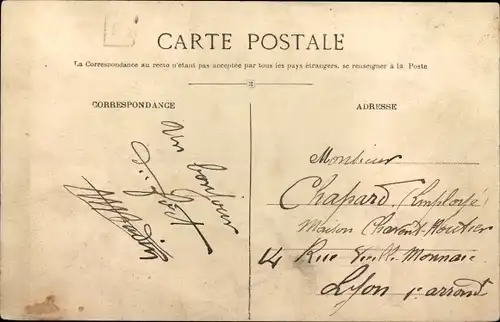 CARTE POSTALE
La Correspondance au recto n'étant pas acceptée par tous les pays étrangers, se renseigner à la Poste
CORRESPONDANCE
un bonjour
ADRESSE
Monsieur
Chapard (Employé)
Maison
14 Rue Vieille Monnaie
Lyon 1er arrond